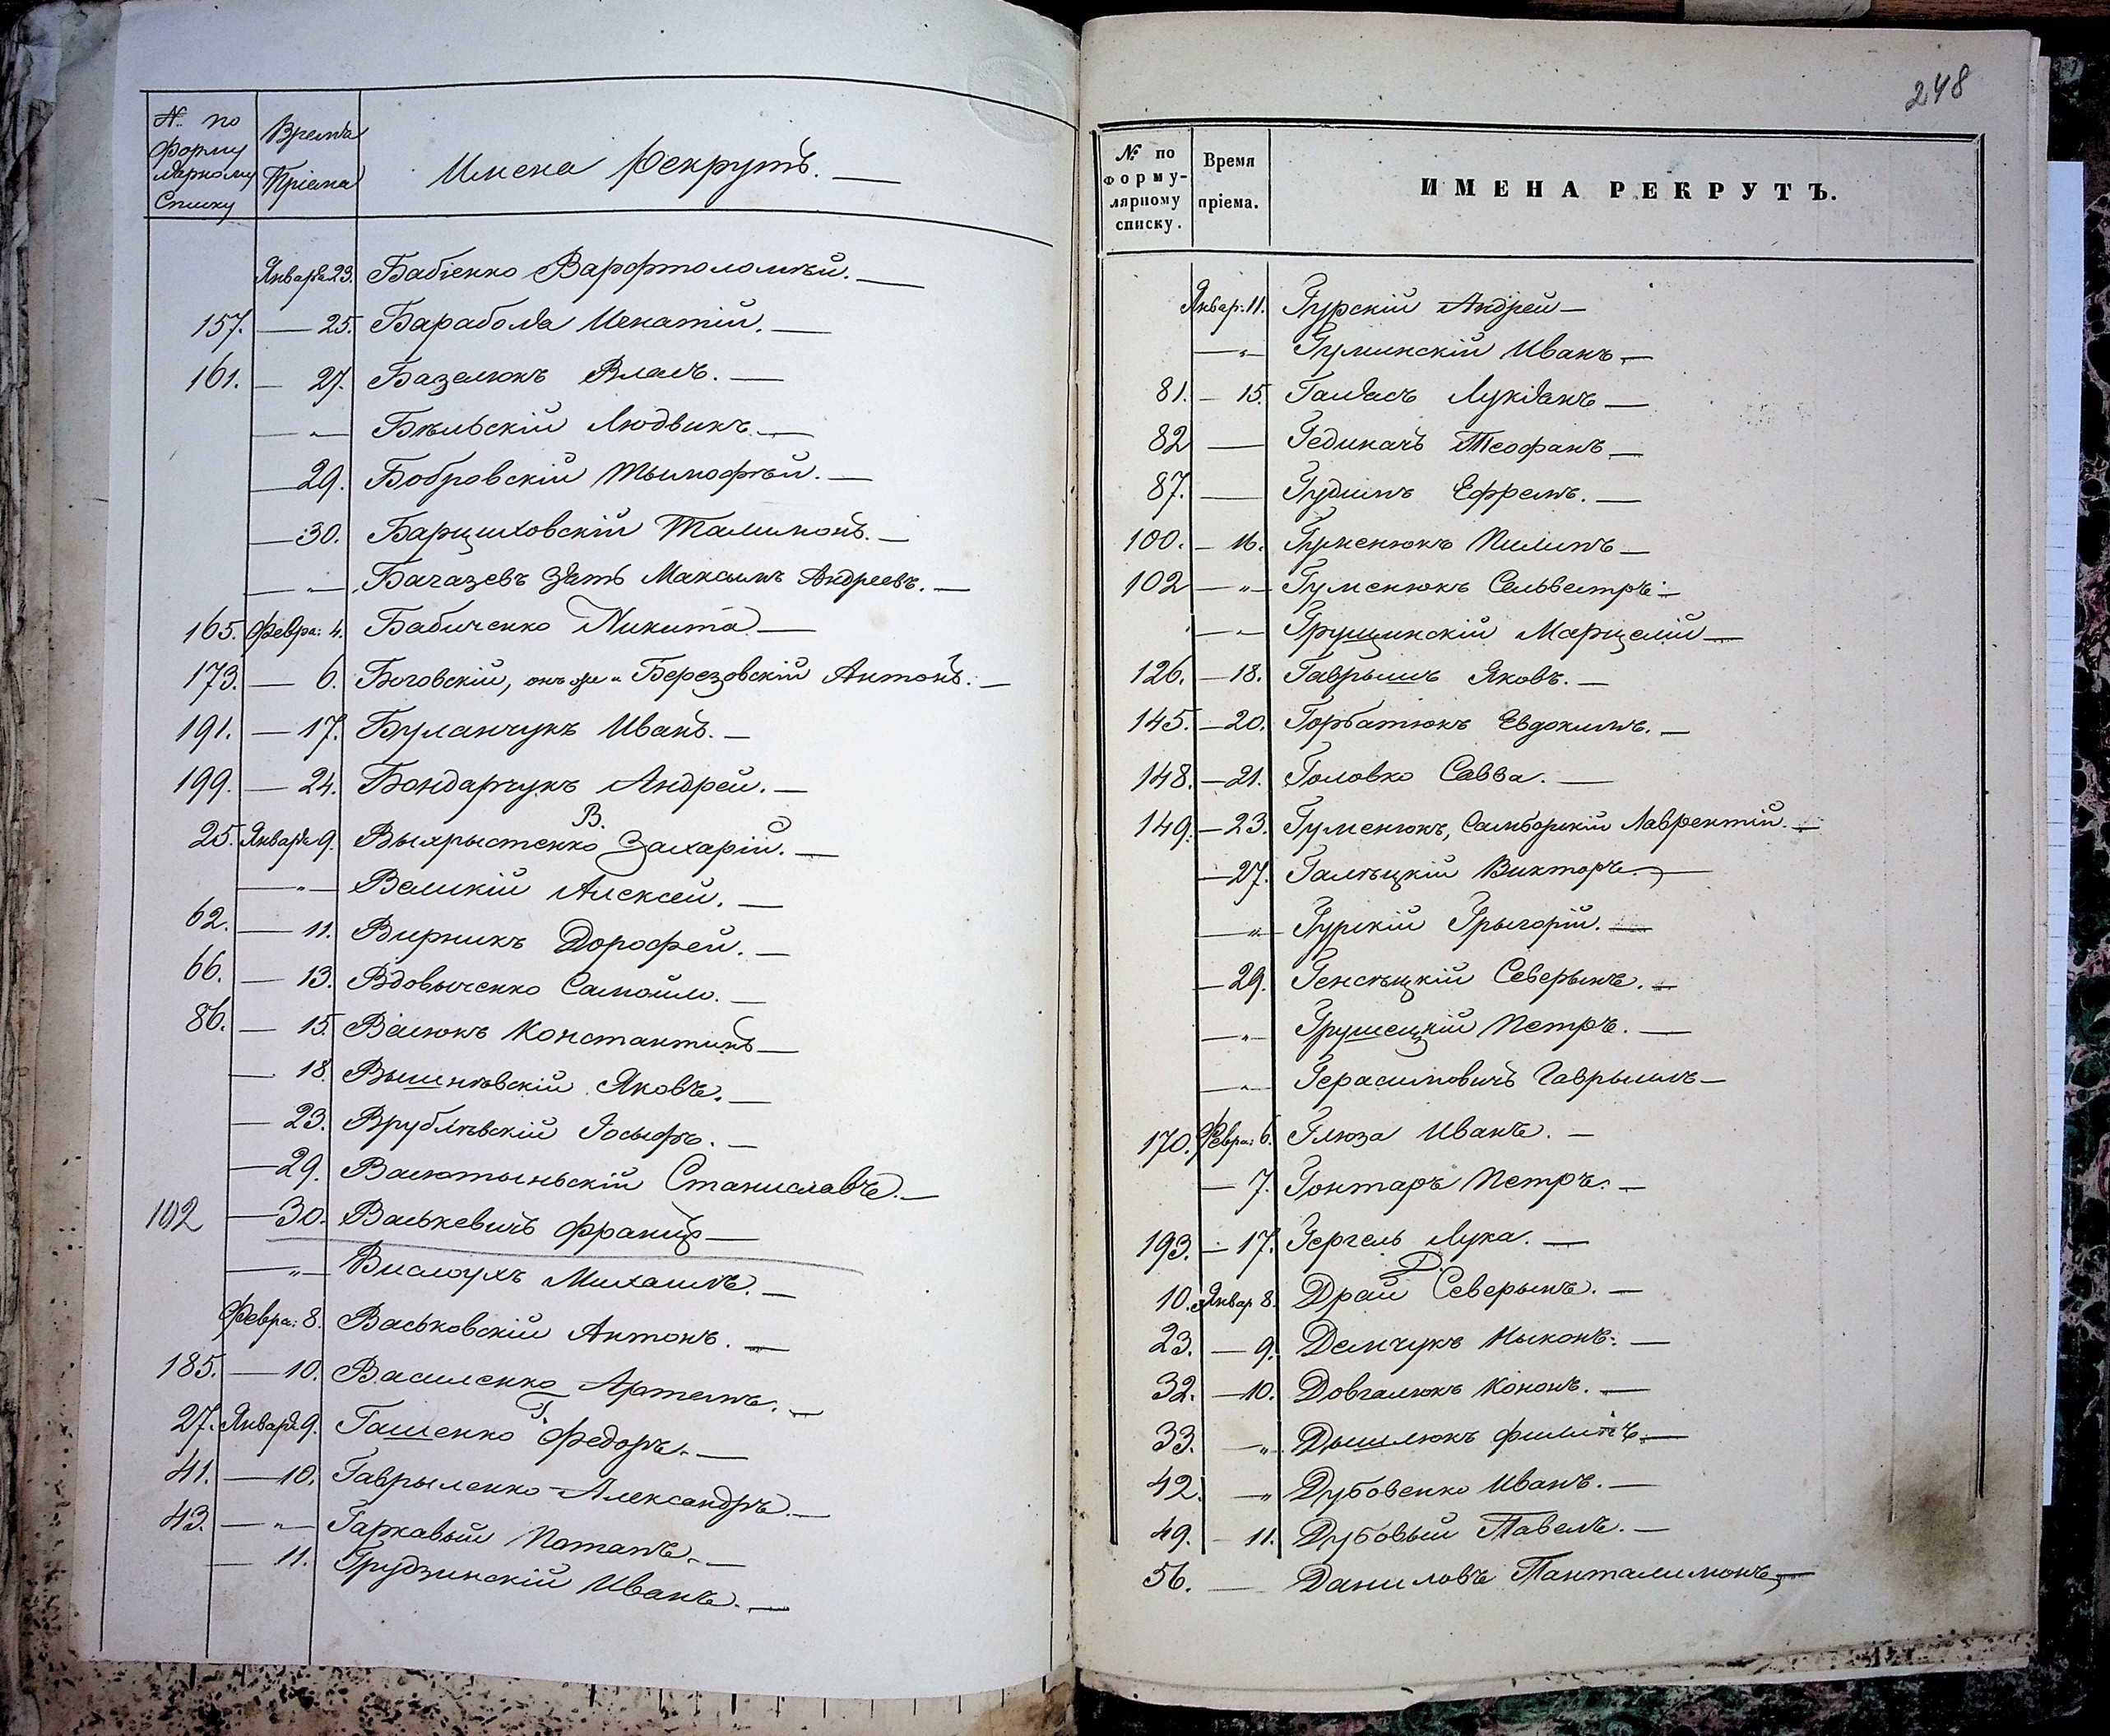 № по Форму лярному Списку
Время Пріема
Имена Рекрутъ. —
Января 23. Бабіенко Варфтоломѣй. —
157. — 25. Бараболя Игнатій. —
161. — 27. Базелюкъ Власъ. —
— „ — Бѣльскій Людвикъ. —
— 29. Бобровскій Тымофѣй. —
— 30. Барщиховскій Талимонъ. —
— „ — Багазевъ Зять Максымъ Андреевъ. —
165. Февра: 4. Бабиченко Никита —
173. — 6. Боговскій, онъ же и Березовскій Антонъ. —
191. — 17. Буланчукъ Иванъ. —
199. — 24. Бондарчукъ Андрей. —
В.
25. Января 9. Выхрыстенко Захарій. —
— „ — Великій Алексей. —
62. — 11. Вирникъ Дорофей. —
66. — 13. Вдовыченко Самойло. —
86. — 15. Валюкъ Константинъ —
— 18. Вышнѣвскій Яковъ. —
— 23. Врублѣвскій Іосыфъ. —
— 29. Васютыньскій Станиславъ. —
102 — 30. Васькевичъ Францъ —
— „ — Вислоухъ Михаилъ. —
Февра: 8. Васьковскій Антонъ. —
185. — 10. Василенко Артемъ. —
Г.
27. Января 9. Гашенко Федоръ. —
41. — 10. Гаврыленко Александръ. —
43. — „ — Гаркавый Потапъ. —
— 11. Грудзинскій Иванъ. —
248
№ по форму-лярному списку.
Время пріема.
ИМЕНА РЕКРУТЪ.
Январ: 11. Гурскій Андрей —
— „ — Гуминскій Иванъ —
81. — 15. Галасъ Лукіянъ —
82 — Гединачъ Теофанъ —
87. — Гудимъ Ефремъ. —
100. — 16. Гуменюкъ Пилипъ —
102 — „ — Гуменюкъ Сельвестръ —
— „ — Грущинскій Марцелій —
126. — 18. Гаврышъ Яковъ. —
145. — 20. Горбатюкъ Евдокимъ. —
148. — 21. Головко Савва. —
149. — 23. Гуменюкъ, Самборскій Лаврентій. —
— 27. Галѣцкій Викторъ. —
— „ — Гурскій Грыгорій. —
— 29. Генсѣцкій Северынъ. —
— „ — Грушецкій Петръ. —
— „ — Герасимовичъ Гаврыилъ —
170. Февра: 6. Глюза Иванъ. —
— 7. Гонтаръ Петръ. —
193. — 17. Гергель Лука. —
Д.
10. Январ 8. Драй Северынъ. —
23. — 9. Демчукъ Ныконъ. —
32. — 10. Довгалюкъ Кононъ. —
33. — „ Дышлюкъ Филипъ —
42. — „ Дубовенко Иванъ. —
49. — 11. Дубовый Павелъ. —
56. — Даниловъ Панталимонъ —